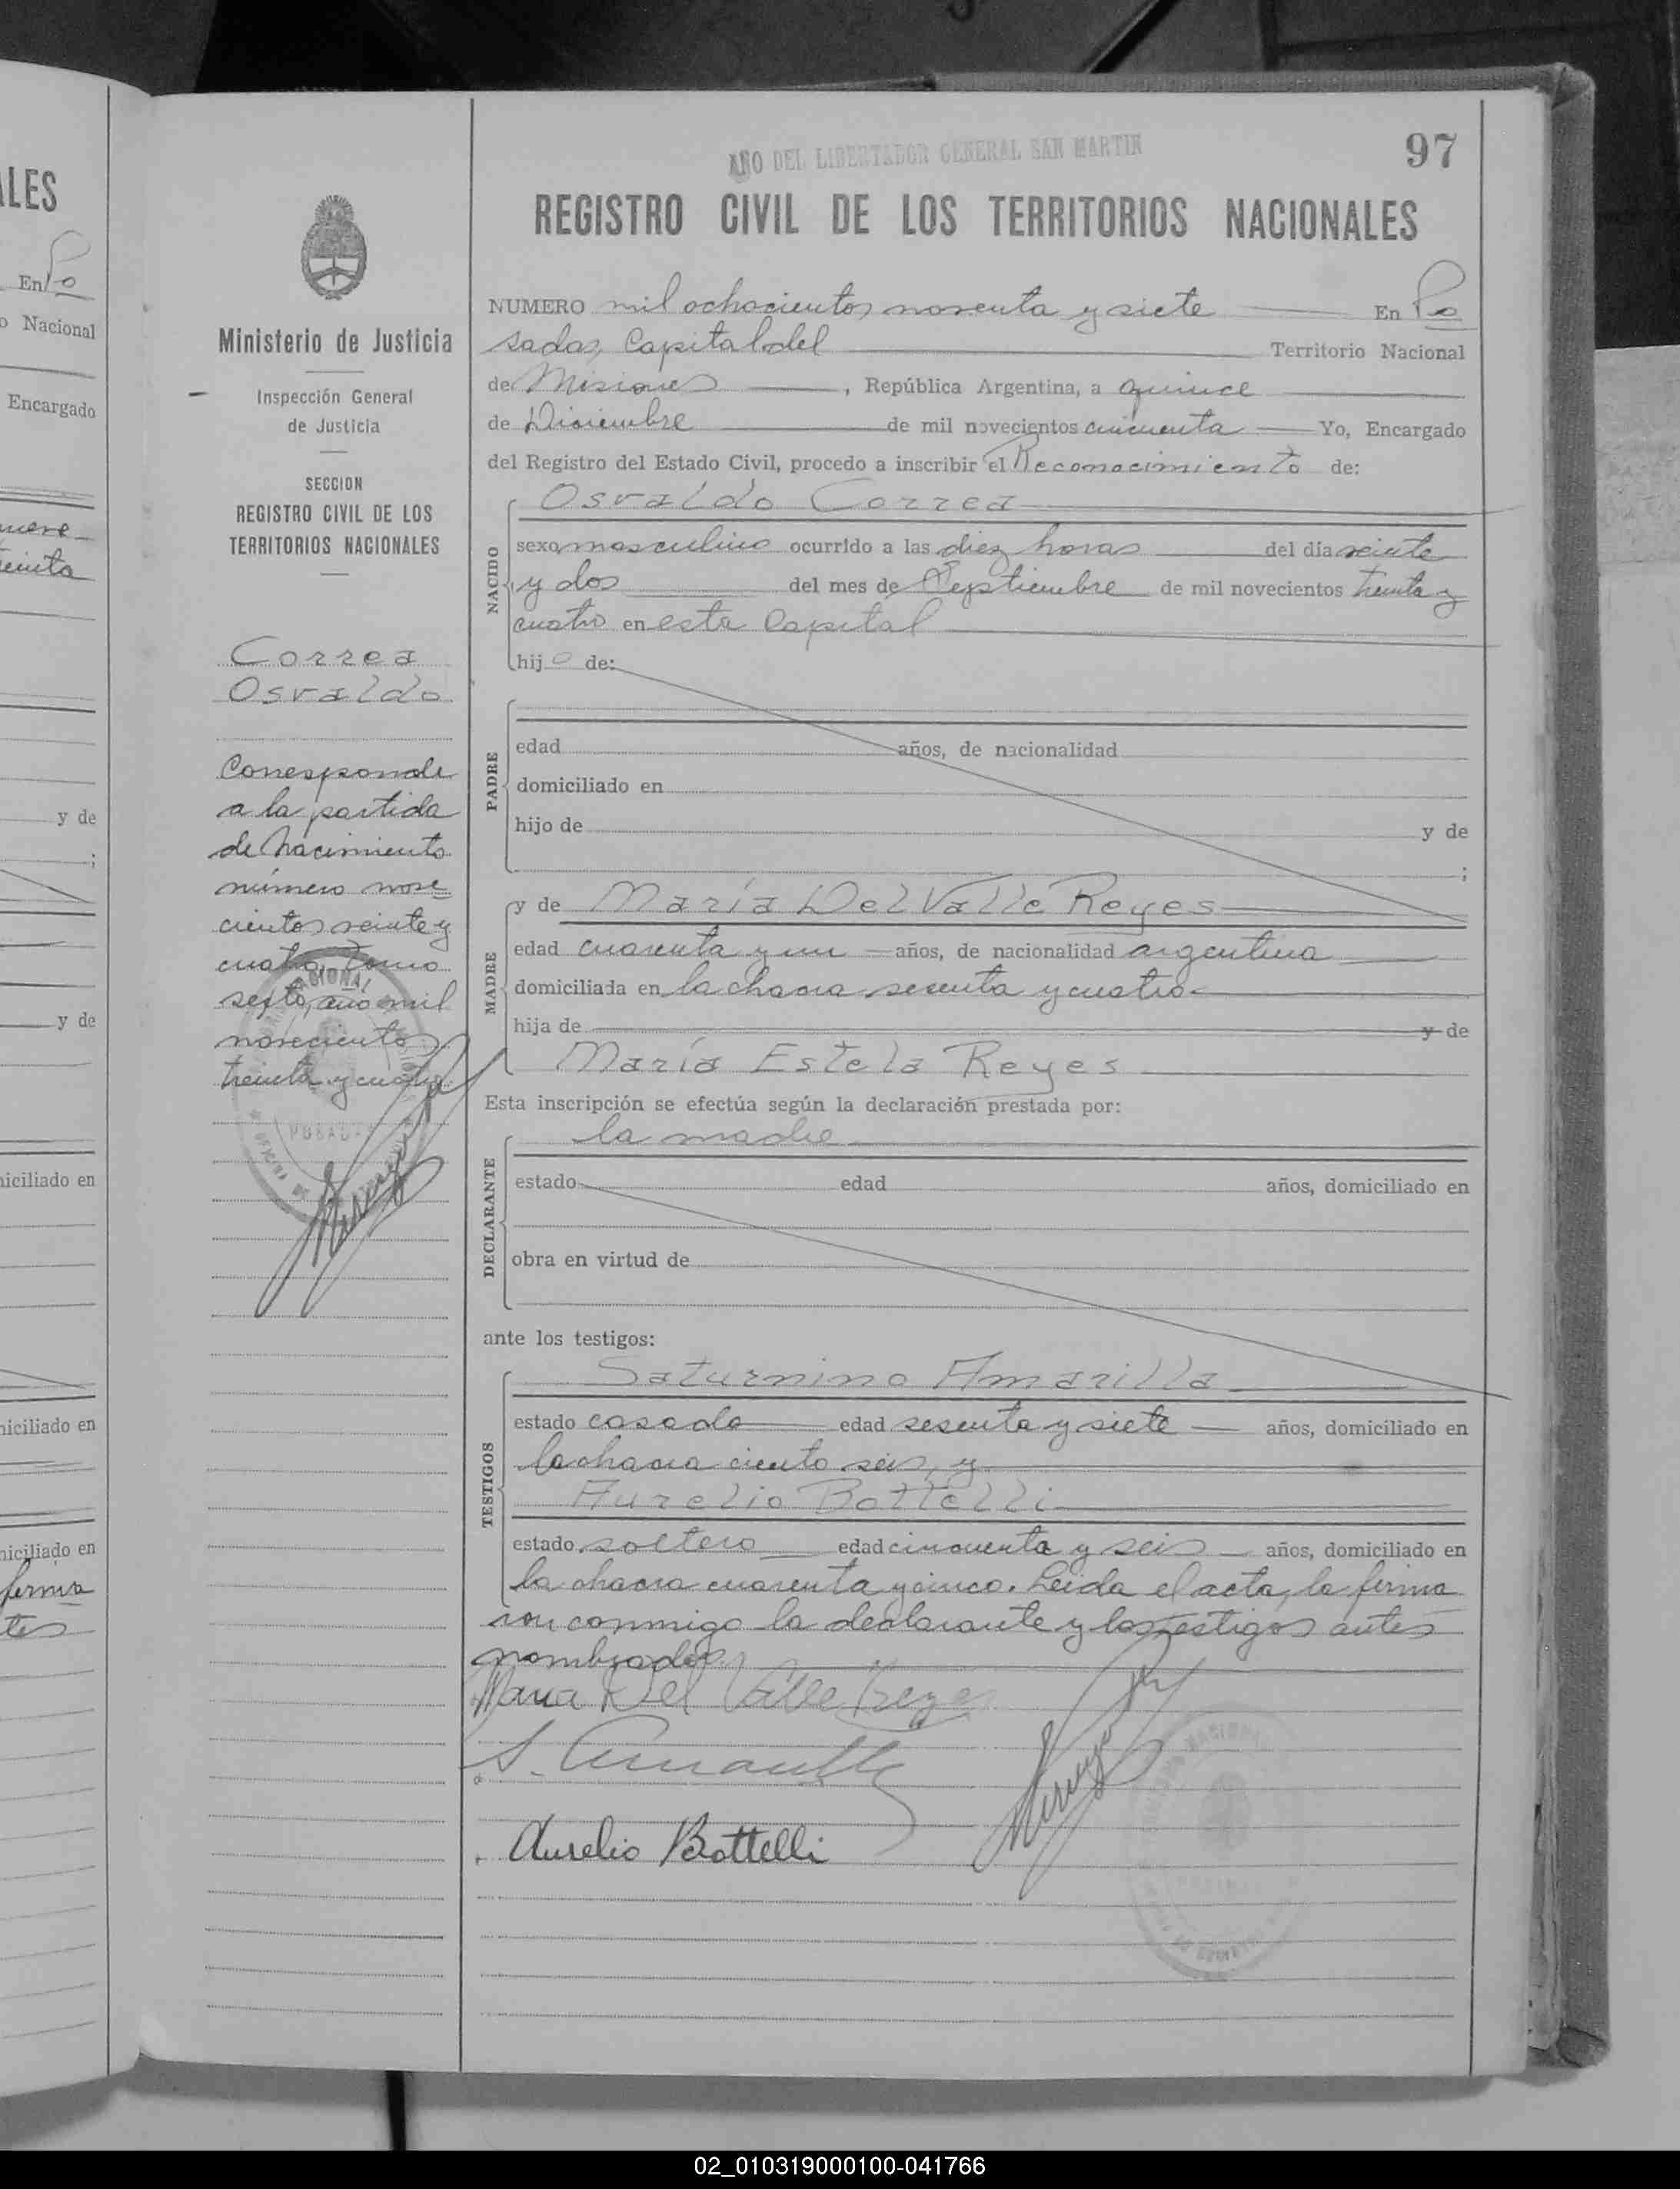 AÑO DEL LIBERTADOR GENERAL SAN MARTIN
97
REGISTRO CIVIL DE LOS TERRITORIOS NACIONALES
NUMERO mil ochocientos noventa y siete En Po
sadas, Capital del Territorio Nacional
de Misiones, República Argentina, a quince
de Diciembre de mil novecientos cincuenta Yo, Encargado
del Registro del Estado Civil, procedo a inscribir el Reconocimiento de:
NACIDO
Osvaldo Correa
sexo masculino ocurrido a las diez horas del día veinte
y dos del mes de Septiembre de mil novecientos treinta y
cuatro en esta Capital
hijo de:
PADRE
edad años, de nacionalidad
domiciliado en
hijo de y de
;
MADRE
y de María Del Valle Reyes
edad cuarenta y un años, de nacionalidad argentina
domiciliada en la chacra sesenta y cuatro.
hija de y de
María Estela Reyes
Esta inscripción se efectúa según la declaración prestada por:
DECLARANTE
la madre
estado edad años, domiciliado en
obra en virtud de
ante los testigos:
TESTIGOS
Saturnino Amarilla
estado casado edad sesenta y siete años, domiciliado en
la chacra ciento seis, y
Aurelio Bottelli
estado soltero edad cincuenta y seis años, domiciliado en
la chacra cuarenta y cinco. Leida el acta, la firma
ron conmigo la declarante y los testigos antes
nombrados.
Maria Del Valle Reyes
S. Amarilla
Aurelio Bottelli
Ministerio de Justicia
Inspección General
de Justicia
SECCION
REGISTRO CIVIL DE LOS
TERRITORIOS NACIONALES
Correa
Osvaldo
Corresponde
a la partida
de nacimiento
número nove
cientos veinte y
cuatro, tomo
sexto, año mil
novecientos
treinta y cuatro
ALES
En Po
o Nacional
Encargado
y de
;
y de
niciliado en
niciliado en
niciliado en
firma
tes
02_010319000100-041766